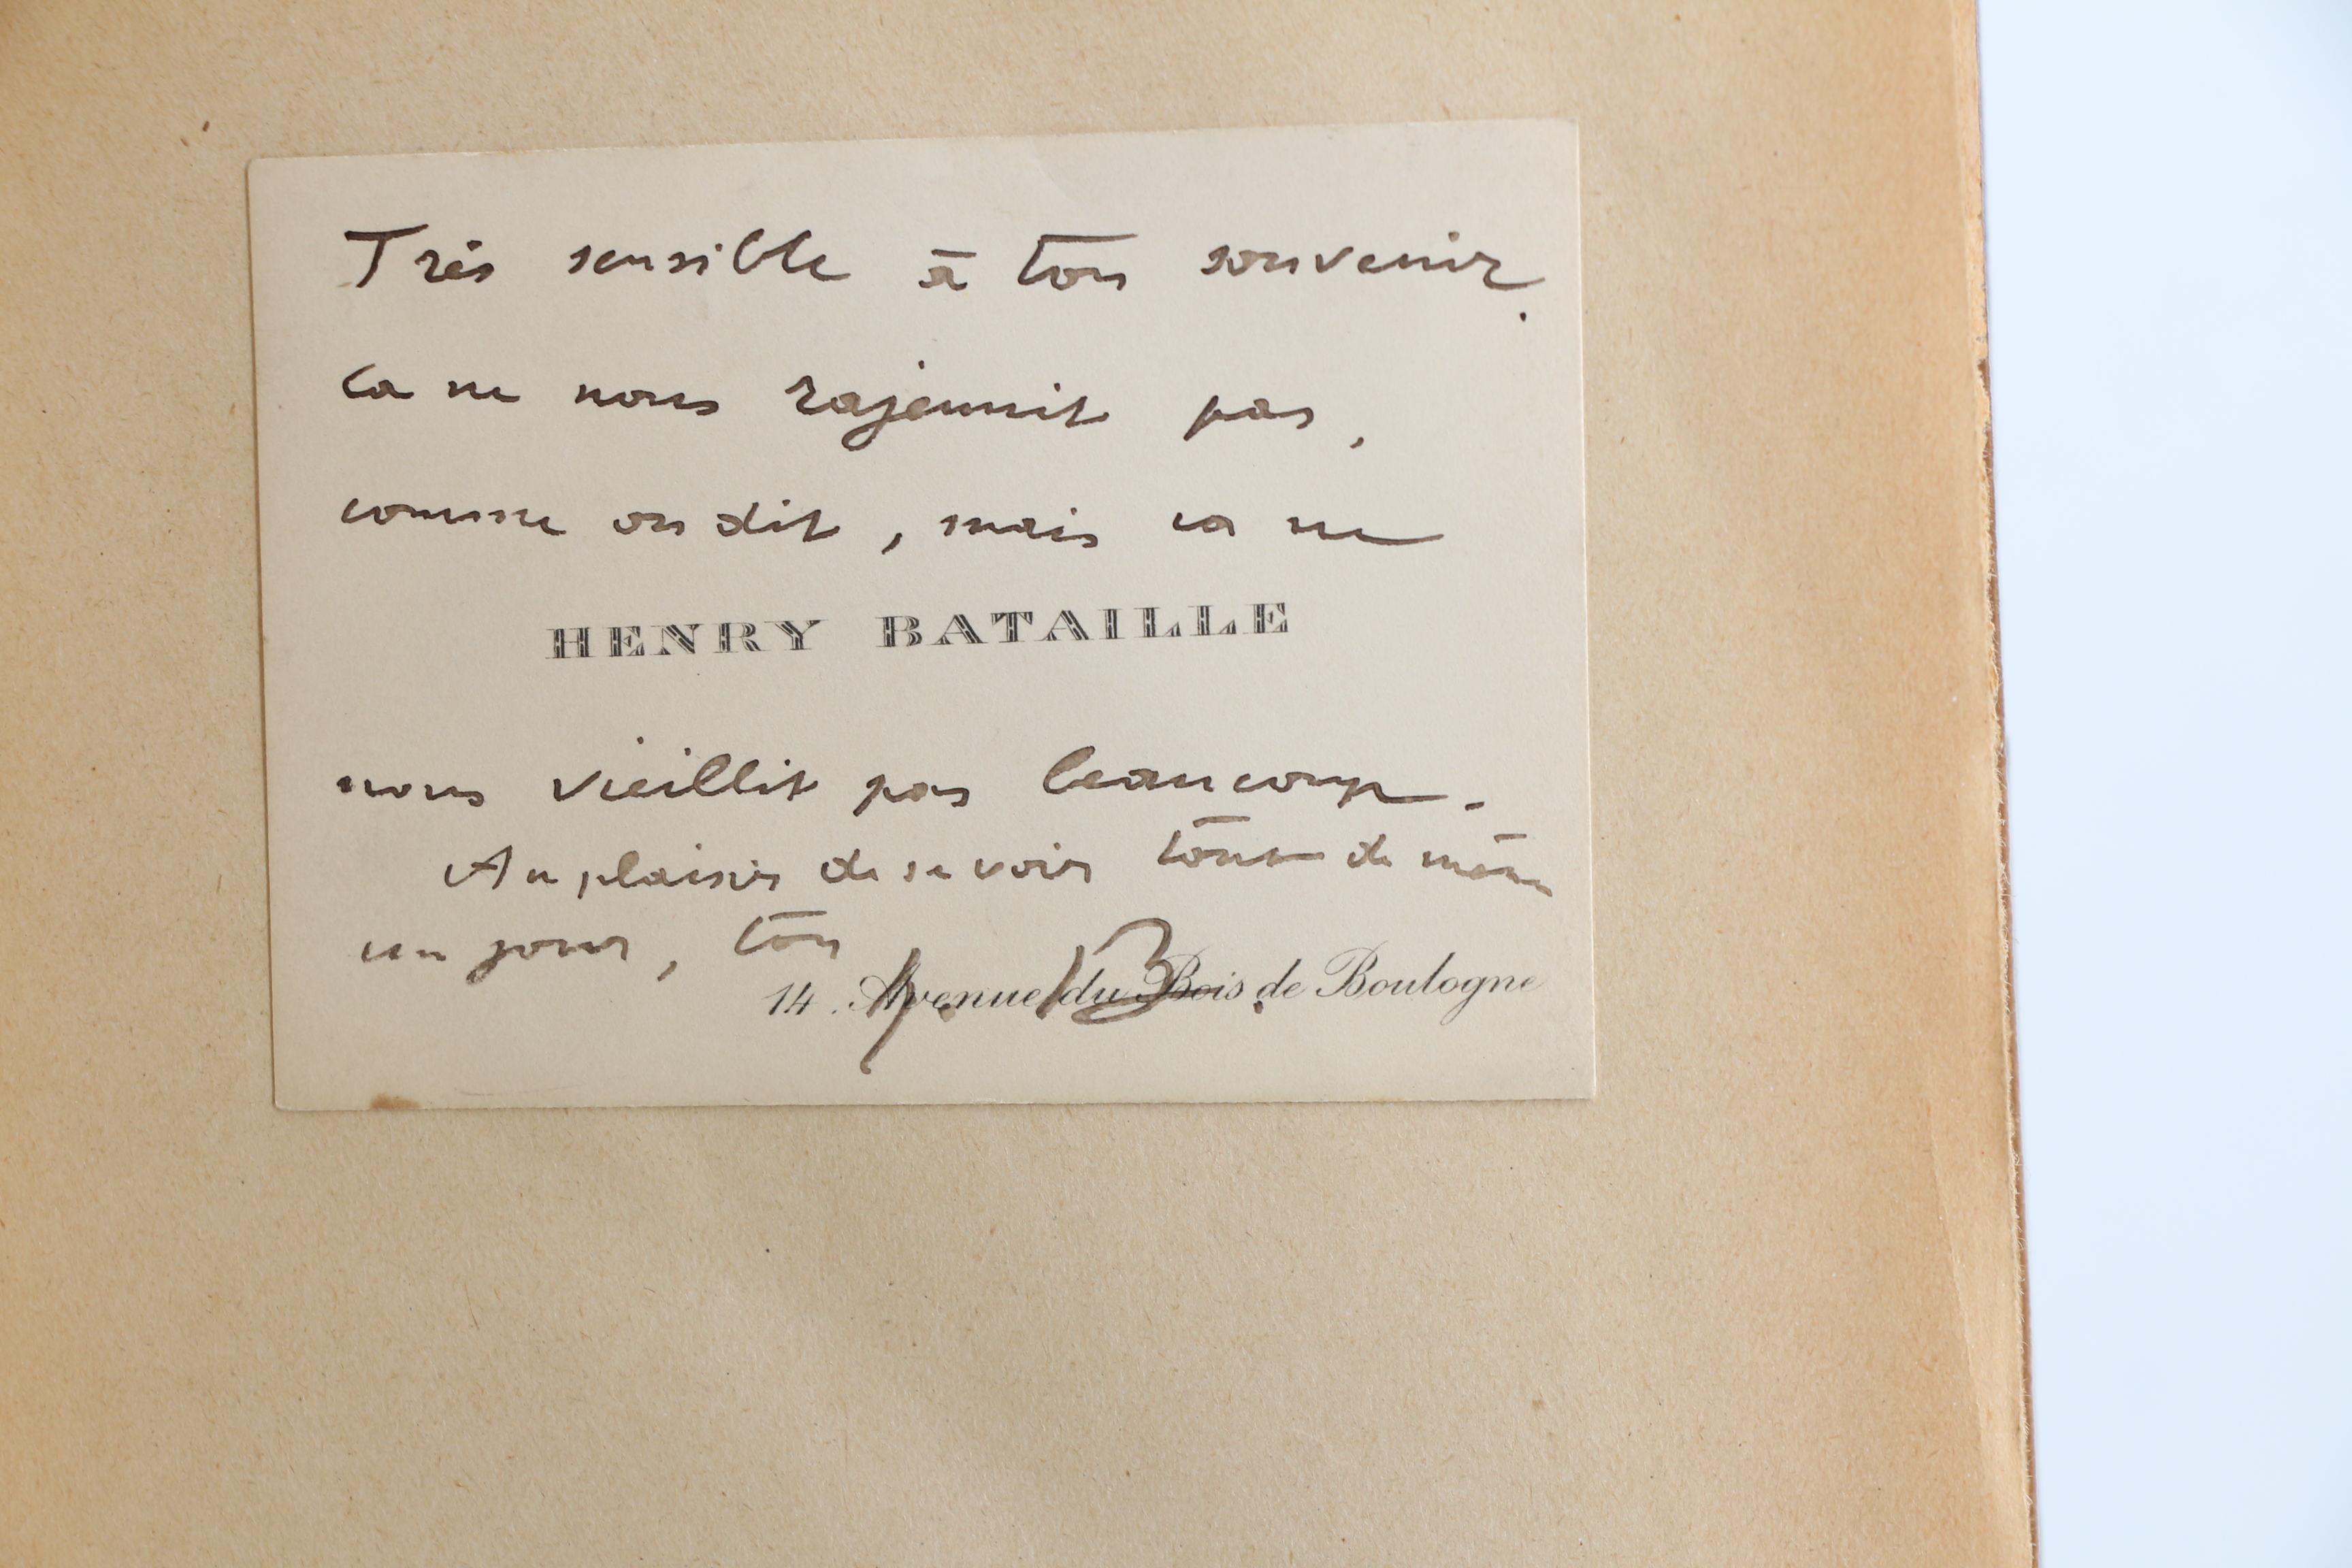 Très sensible à ton souvenir.
Ca ne nous rajeunit pas,
comme on dit, mais ca ne
HENRY BATAILLE
nous vieillit pas beaucoup.
Au plaisir de se voir tout de même
un jour, ton
14. Avenue du Bois de Boulogne
H. B.